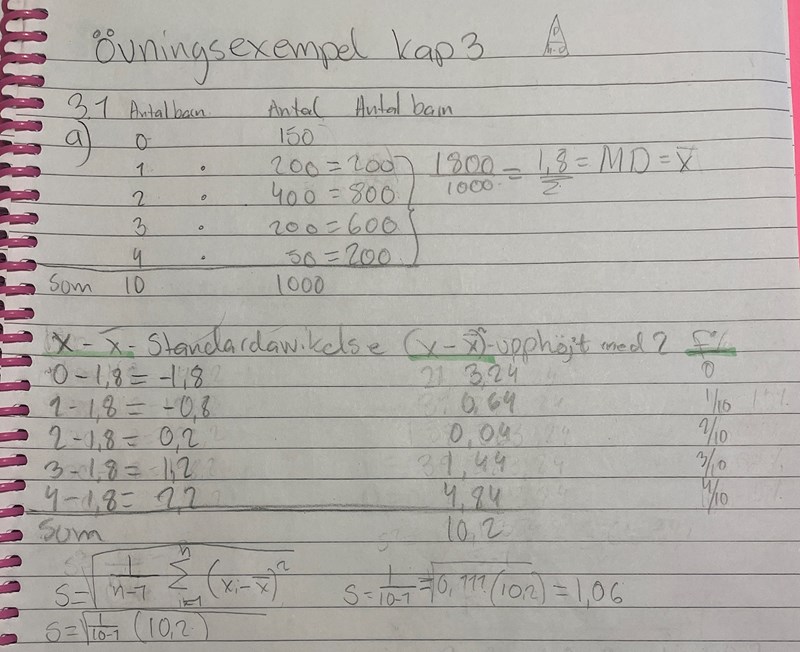 Övningsexempel kap 3
3.1 Antal barn Antal Antal barn
a) 0 150
1 · 200 = 200
2 · 400 = 800
3 · 200 = 600
4 · 50 = 200
1800/1000 = 1,8/2 = MD = x̄
Som 10 1000
x - x̄ - Standardavvikelse (x - x̄)²-upphöjt med 2 f%
0 - 1,8 = -1,8 3,24 0
1 - 1,8 = -0,8 0,64 1/10
2 - 1,8 = 0,2 0,04 2/10
3 - 1,8 = 1,2 1,44 3/10
4 - 1,8 = 2,2 4,84 4/10
Som 10,2
S = √(1/(n-1) Σ(xᵢ - x̄)²) n i=1 S = 1/(10-1) = √(0,111 (10,2)) = 1,06
S = √(1/(10-1) (10,2))